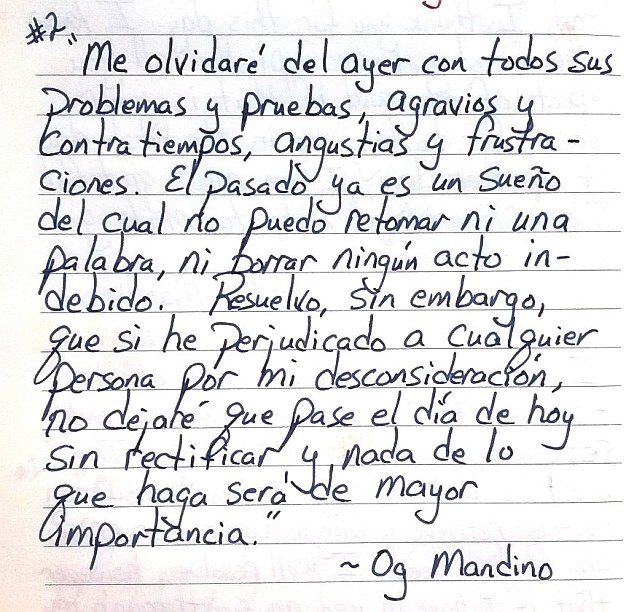 #2. "Me olvidaré del ayer con todos sus
problemas y pruebas, agravios y
contratiempos, angustias y frustra-
ciones. El pasado ya es un sueño
del cual no puedo retomar ni una
palabra, ni borrar ningún acto in-
debido. Resuelvo, sin embargo,
que si he perjudicado a cualquier
persona por mi desconsideración,
no dejaré que pase el día de hoy
sin rectificar y nada de lo
que haga será de mayor
importancia."
~ Og Mandino